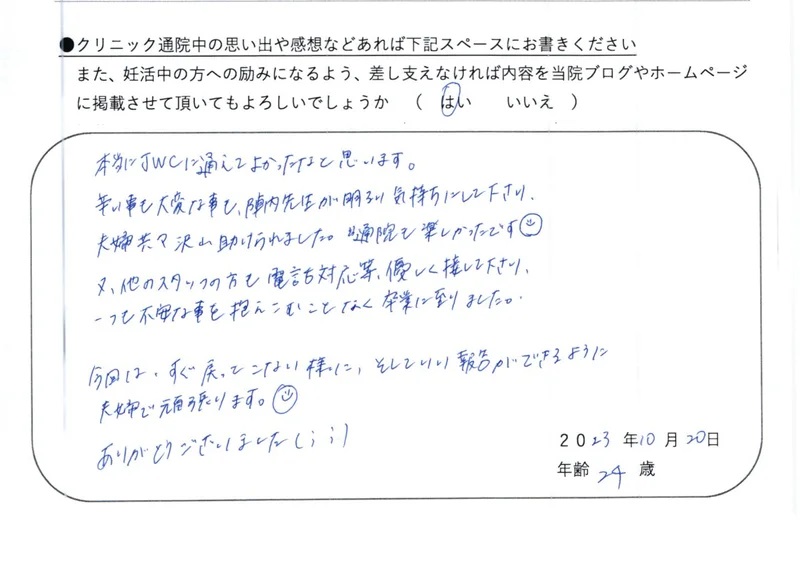 ●クリニック通院中の思い出や感想などあれば下記スペースにお書きください
また、妊活中の方への励みになるよう、差し支えなければ内容を当院ブログやホームページ
に掲載させて頂いてもよろしいでしょうか （ はい いいえ ）
本当にJWCに通えてよかったなと思います。
辛い事も大変な事も、陣内先生が明るい気持ちにして下さり、
夫婦共々沢山助けられました。通院も楽しかったです☺
又、他のスタッフの方も電話対応等、優しく接して下さり、
一つも不安な事を抱えこむことなく卒業に至りました。
今回は、すぐ戻ってこない様に、そしていい報告ができるように
夫婦で頑張ります。☺
ありがとうございました(;;)
2023年10月20日
年齢 24 歳